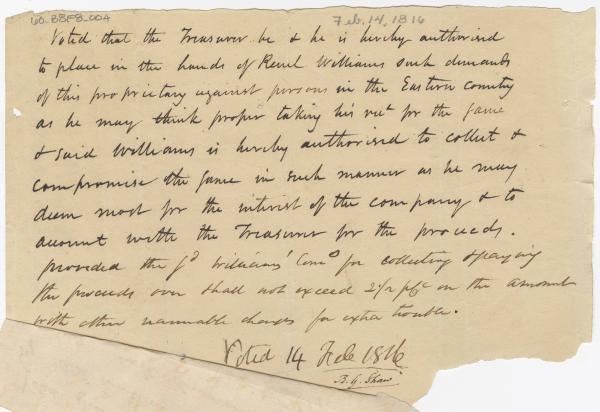 60.88F8.004 Feb. 14, 1816
Voted that the Treasurer be & he is hereby authorised
to place in the hands of Reuel Williams such demands
of this proprietary against persons in the Eastern country
as he may think proper taking his rect for the same
& said Williams is hereby authorised to collect &
compromise the same in such manner as he may
deem most for the interest of the company & to
account with the Treasurer for the proceeds.
provided the sd Williams' Comn for collecting & paying
the proceeds over shall not exceed 2½ pct on the amount
with other reasonable charges for extra trouble.
Voted 14 Feb 1816
B. G. Shaw